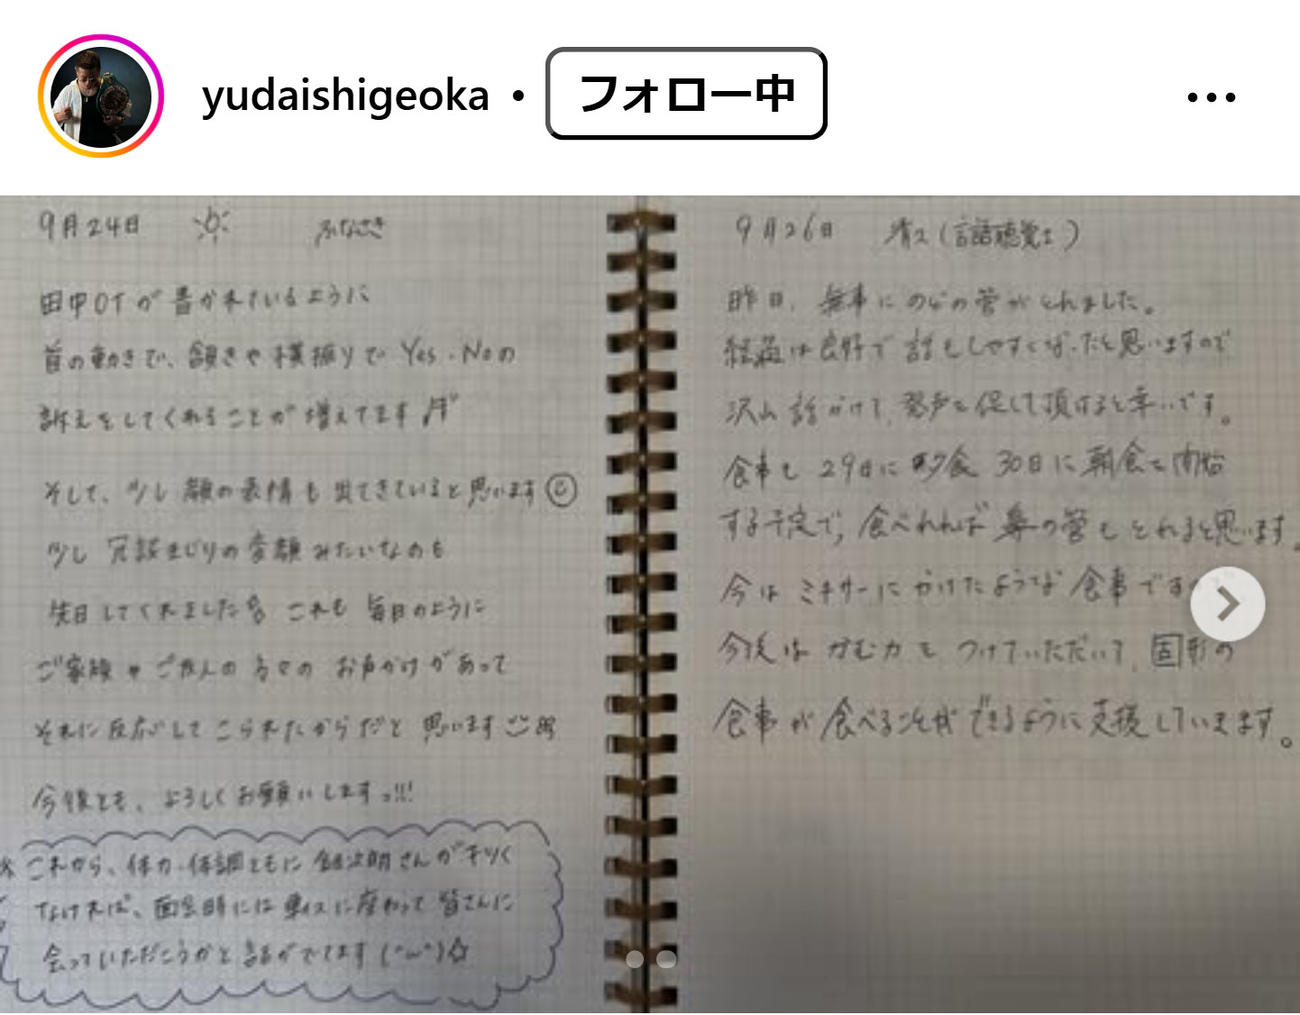 yudaishigeoka • フォロー中
9月24日 ふなさき
田中OTが書かれているように
首の動きで、頷きや横振りでYes・Noの
訴えをしてくれることが増えてます
そして、少し顔の表情も出てきていると思います
少し冗談まじりの変顔みたいなのも
先日してくれました これも毎日のように
ご家族やご友人の方々のお声かけがあって
それに反応してこられたからだと思います
今後とも、よろしくお願いしますっ!!!
※これから、体力・体調ともに 銀次朗さんがキツく
なければ、面会時には車イスに座わって皆さんに
会っていただこうかと話がでてます(^ω^)☆
9月26日 清水(言語聴覚士)
昨日、無事にのどの管がとれました。
経過は良好で話もしやすくなったと思いますので
沢山話かけて、発声を促して頂けると幸いです。
食事も29日に夕食 30日に朝食を開始
する予定で、食べれれば鼻の管もとれると思います。
今はミキサーにかけたような食事ですので
今後はかむ力をつけていただいて、固形の
食事が食べることができるように支援していきます。